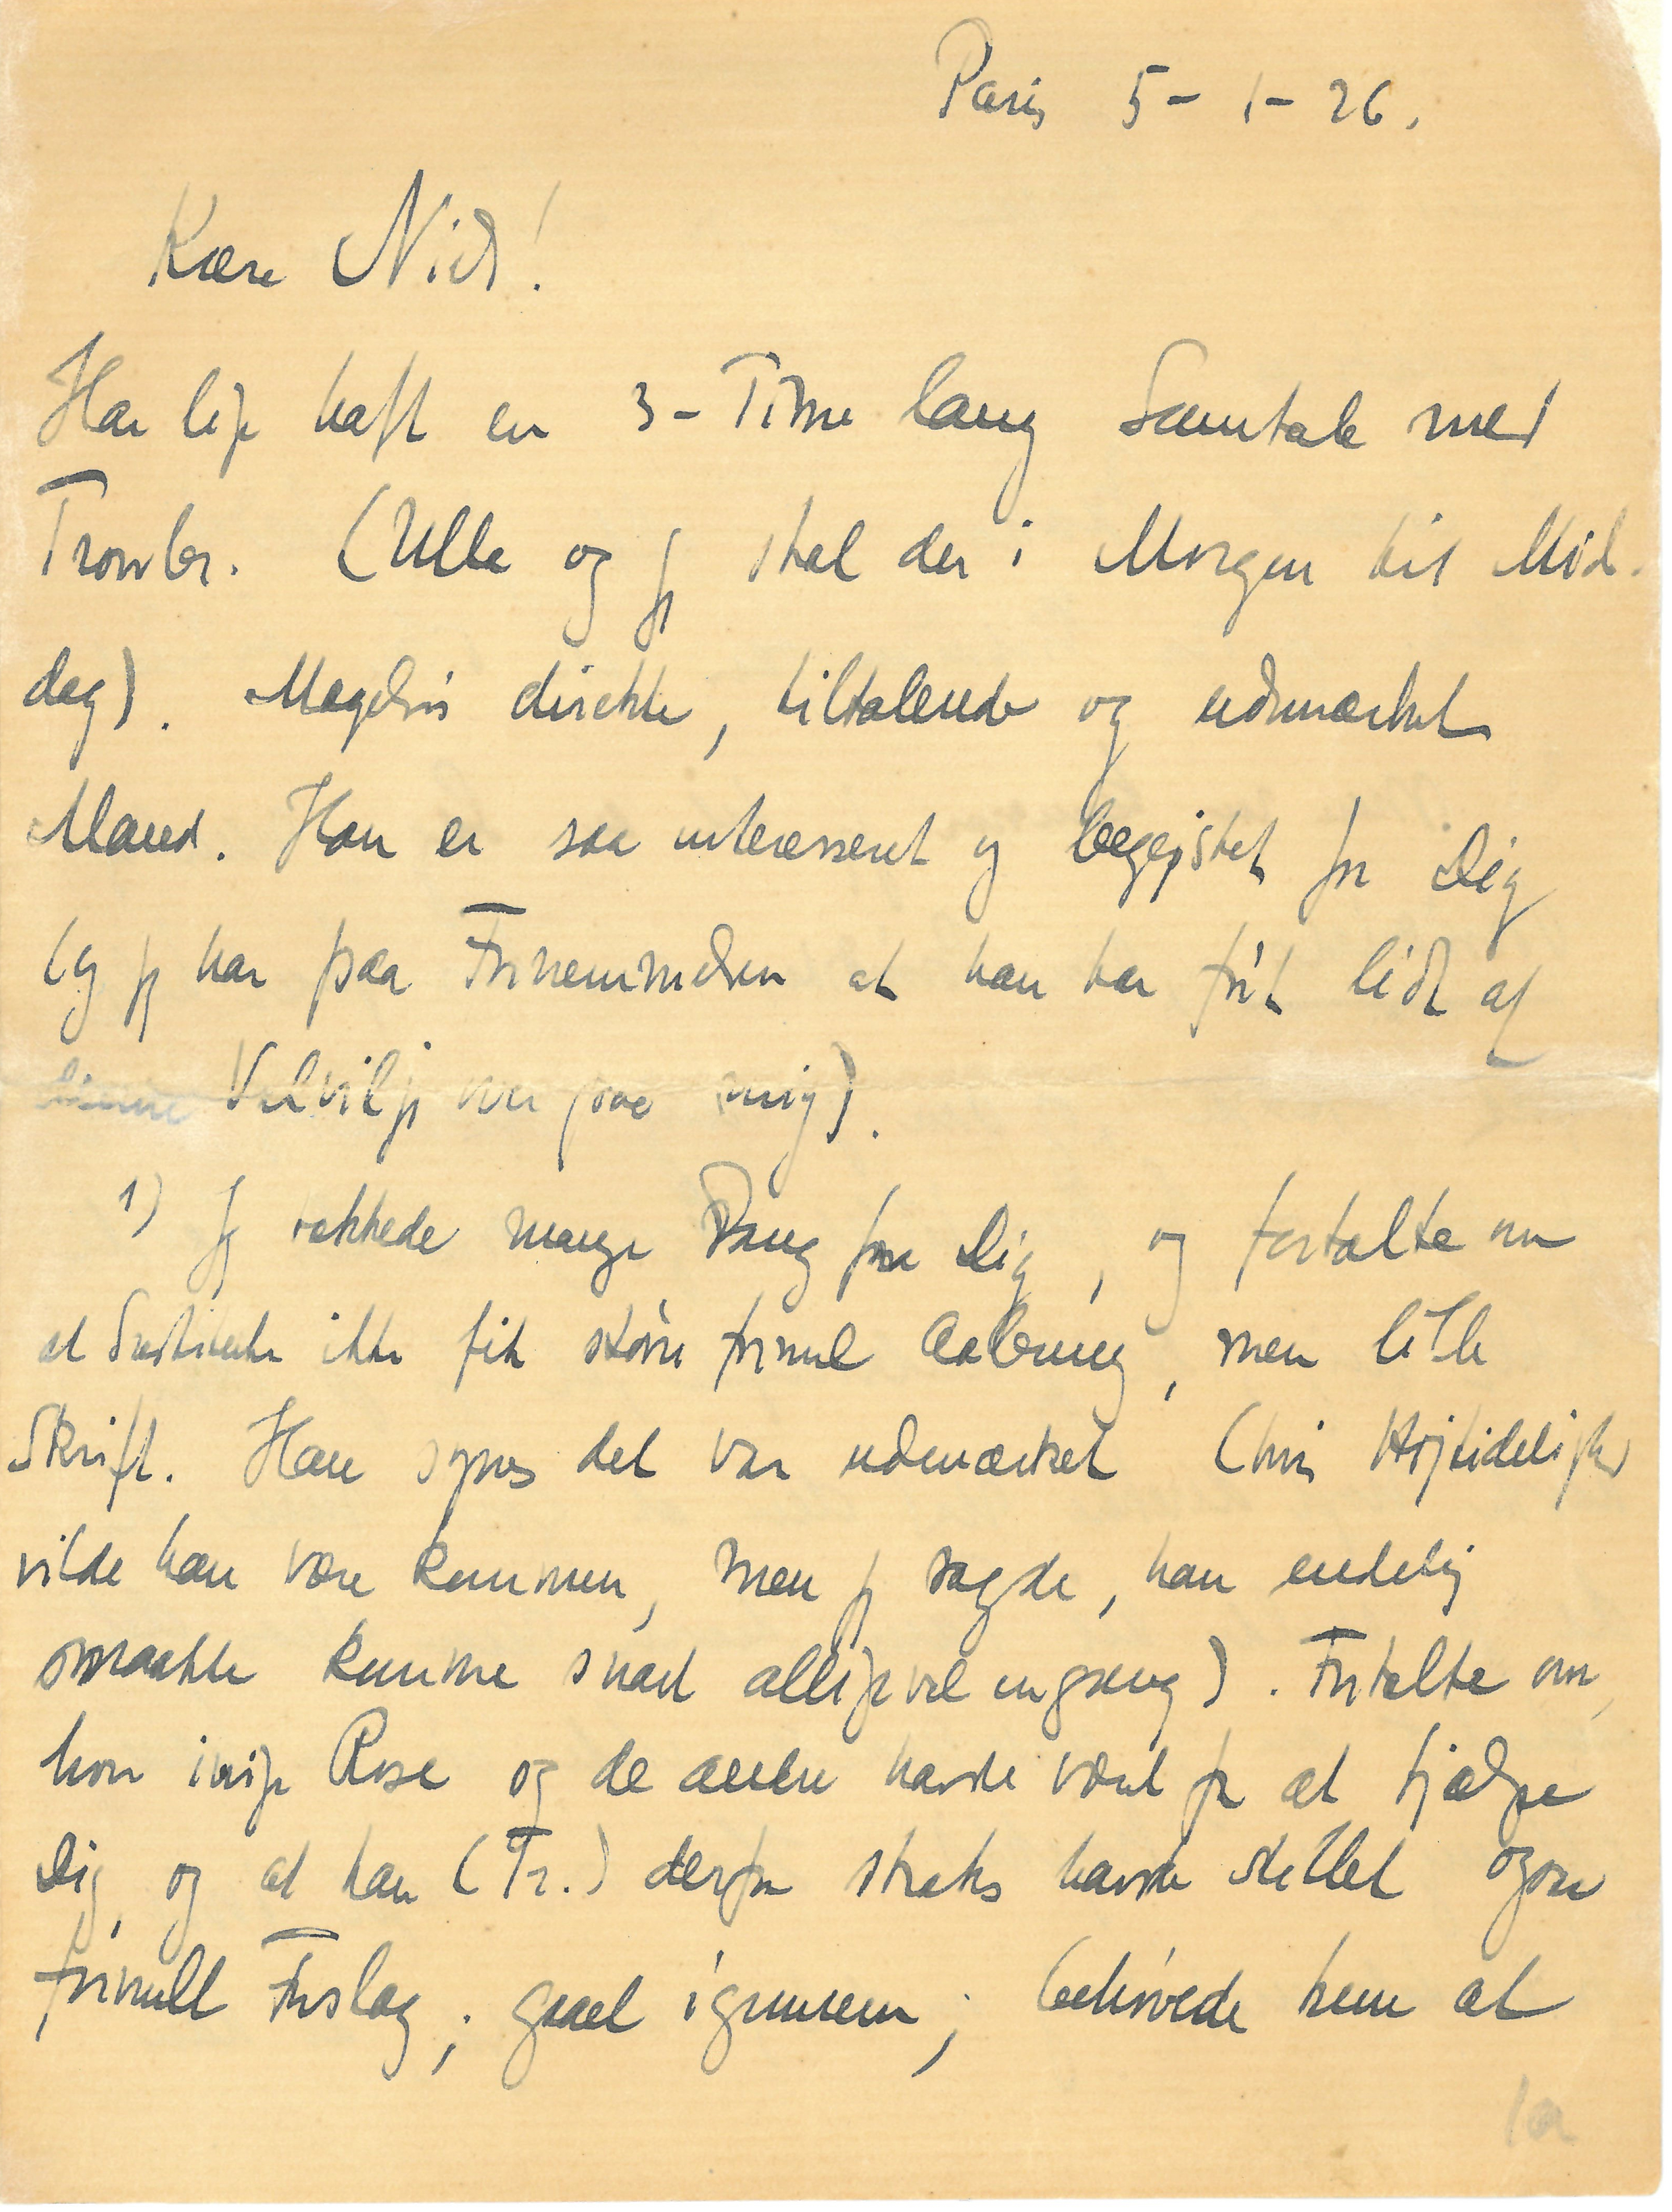 Paris 5-1-26.
Kære Niels!
Har lige haft en 3-Time lang Samtale med
Trowbr. (Ulla og jeg skal der i Morgen til Mid-
dag). Mageløs direkte, tiltalende og udmærket
Mand. Han er saa interesseret og begejstret for Dig
(og jeg har paa Fornemmelsen at han har ført lidt af
denne Velvilje over paa mig).
1) Jeg takkede mange Gang fra Dig, og fortalte om
at Institutet ikke fik større formel Aabning, men lille
Skrift. Han synes det var udmærket (hvis Højtidelighed
vilde han være kommen, men jeg sagde, han endelig
maatte komme snart alligevel engang). Fortalte om,
hvor ivrige Rose og de andre havde været for at hjælpe
Dig, og at han (Tr.) derfor straks havde stillet ogsaa
formelt Forslag; gaaet igennem; behøvede kun at
1a